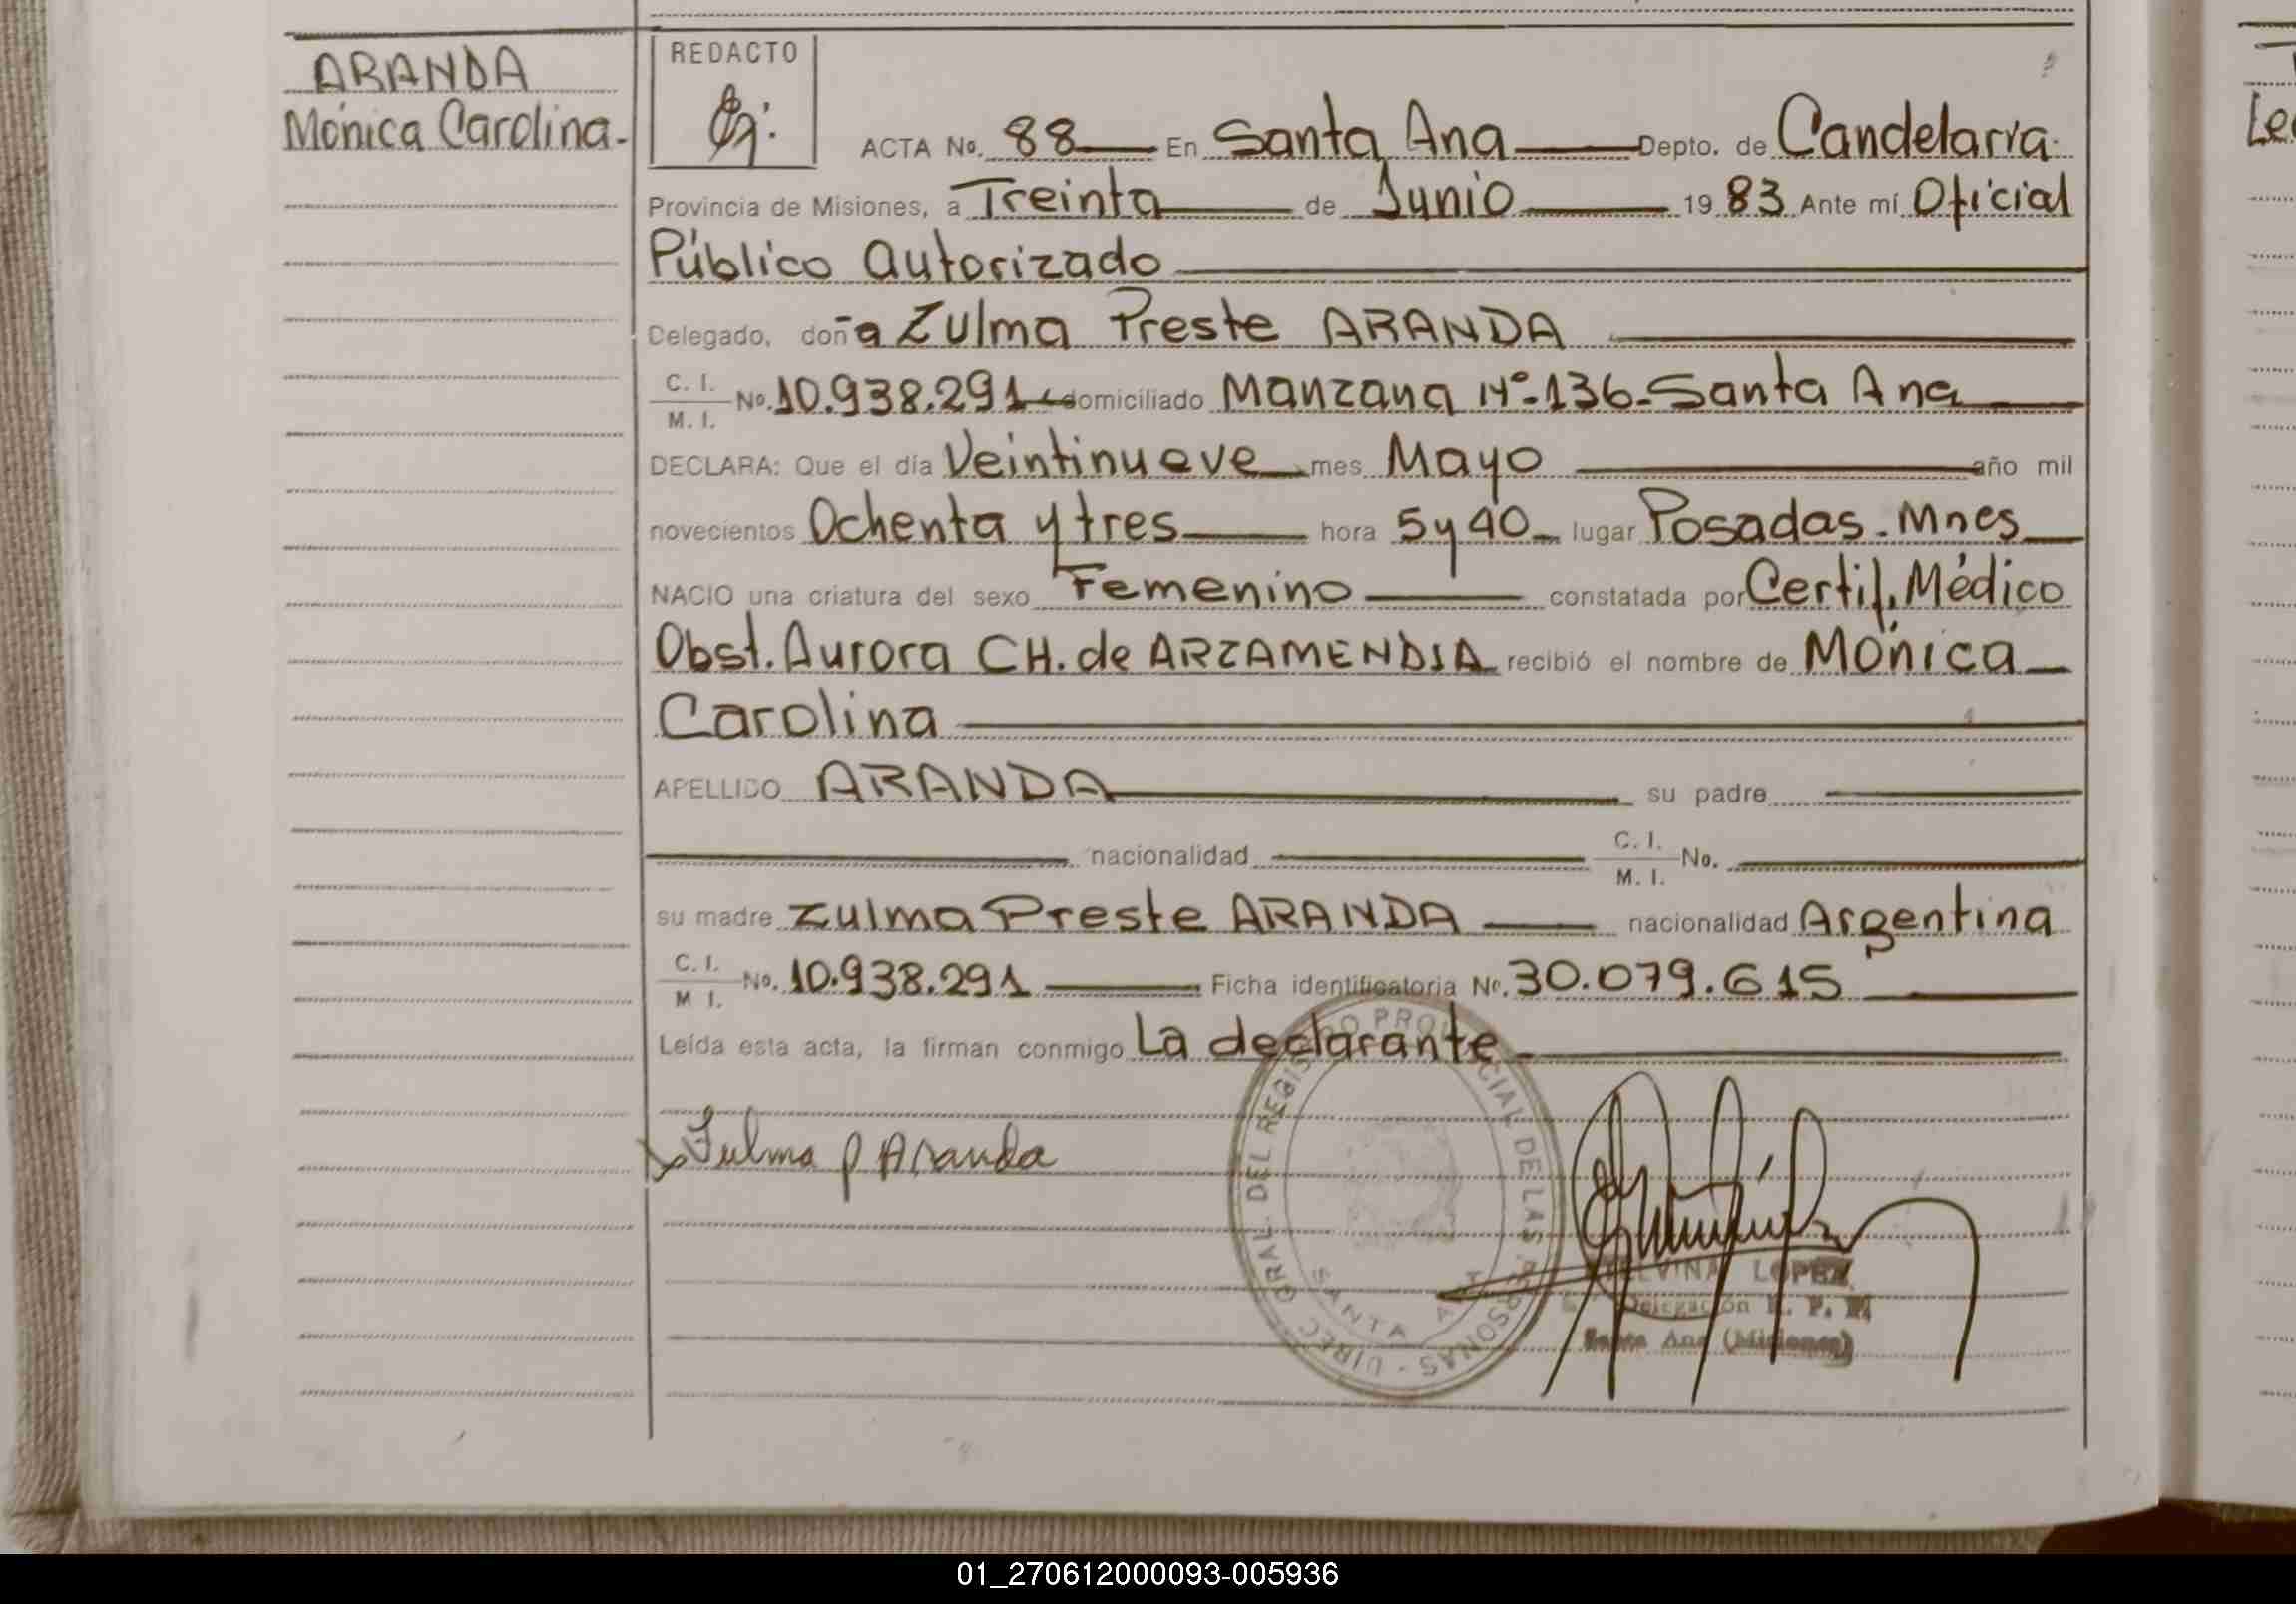 ARANDA
Mónica Carolina.
REDACTO
ACTA No. 88 En Santa Ana Depto. de Candelaria
Provincia de Misiones, a Treinta de Junio 19 83 Ante mí Oficial
Público Autorizado
Delegado, doña Zulma Preste ARANDA
C. I.
M. I. No. 10.938.291 domiciliado Manzana Nº 136 - Santa Ana
DECLARA: Que el día Veintinueve mes Mayo año mil
novecientos Ochenta y tres hora 5 y 40 lugar Posadas - Mnes
NACIO una criatura del sexo Femenino constatada por Certif. Médico
Obst. Aurora CH. de ARZAMENDIA recibió el nombre de Mónica
Carolina
APELLIDO ARANDA su padre
nacionalidad C. I.
M. I. No.
su madre Zulma Preste ARANDA nacionalidad Argentina
C. I.
M I. No. 10.938.291 Ficha identificatoria Nº. 30.079.615
Leída esta acta, la firman conmigo La declarante
Zulma P Aranda
DIREC. GRAL. DEL REGISTRO PROVINCIAL DE LAS PERSONAS
SANTA ANA
LOPEZ
Delegación R. P. P.
Santa Ana (Misiones)
Le
01_270612000093-005936